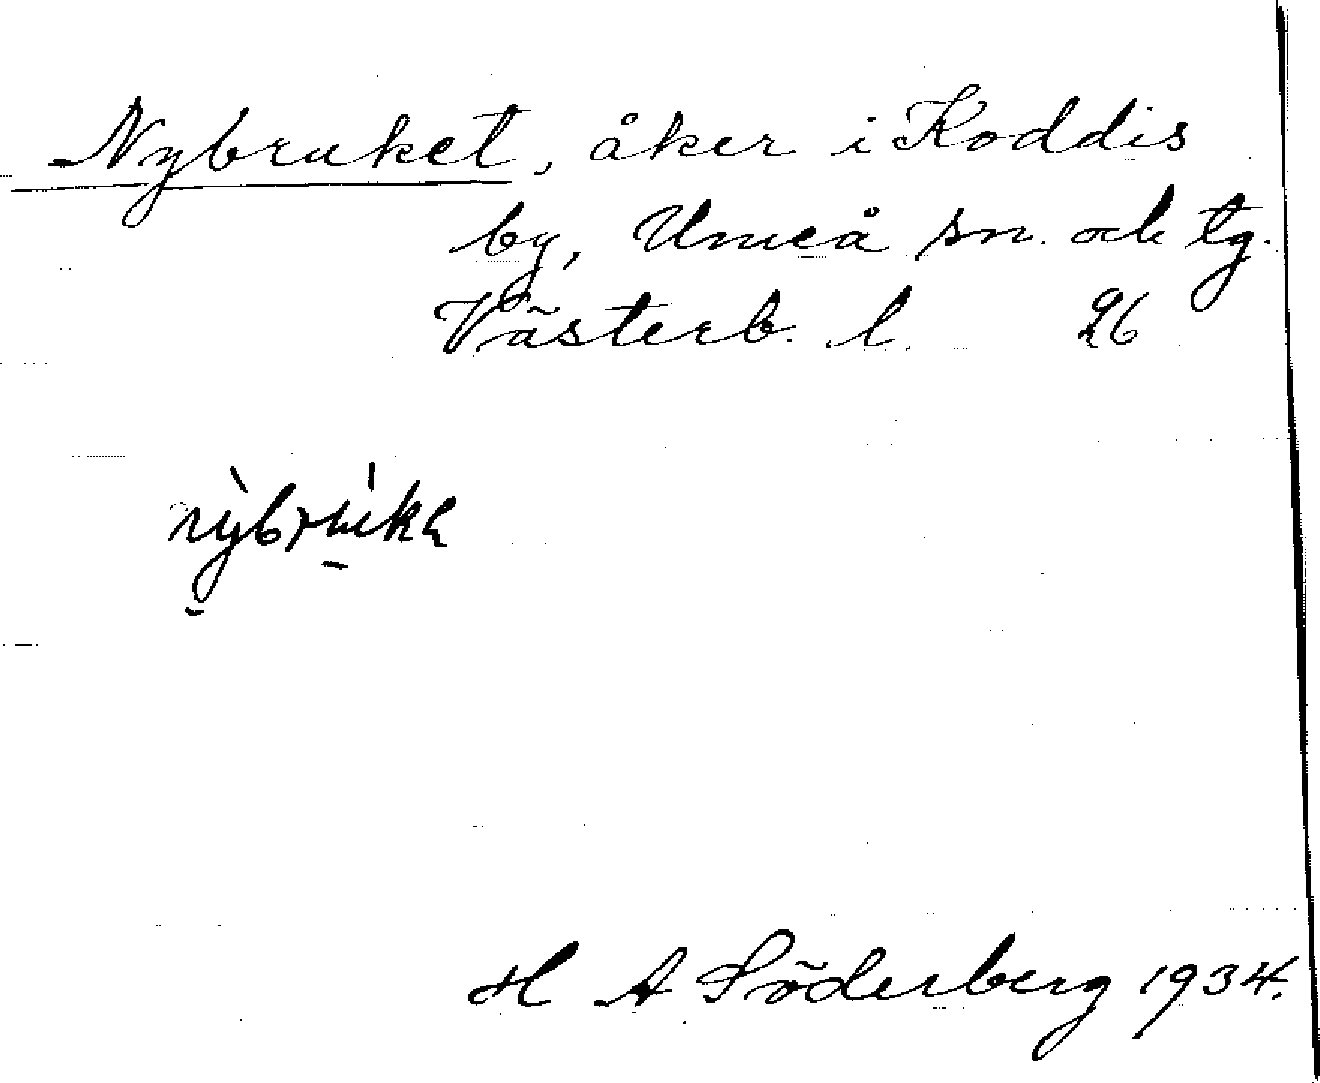 Nybruket, åker i Koddis
by, Umeå sn. och tg.
Västerb. l. 26
H A Söderberg 1934.